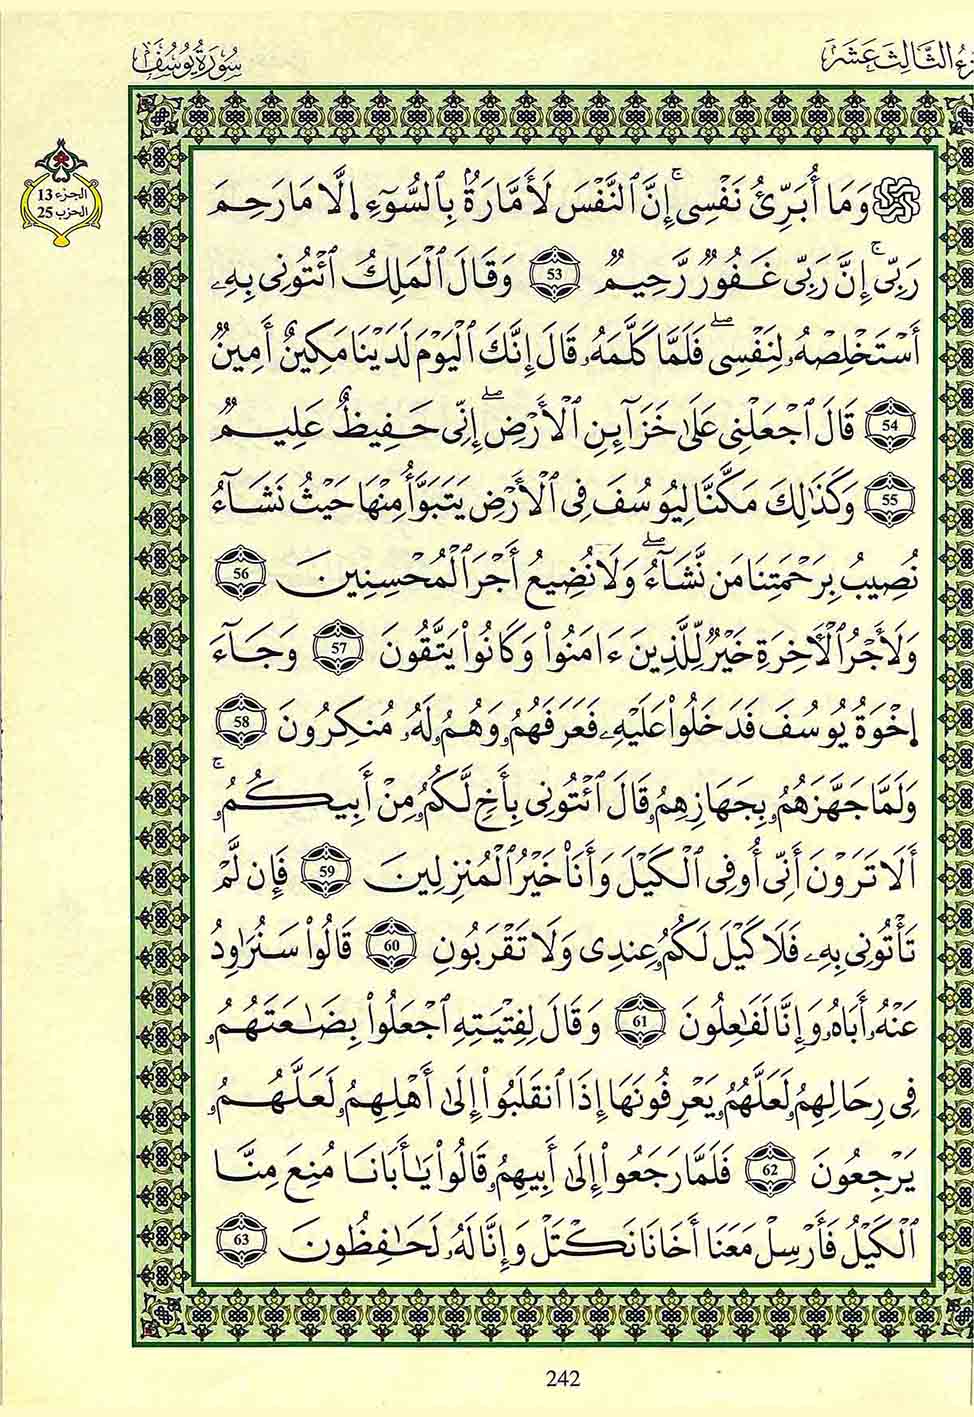 الجزء الثالث عشر
سورة يوسف
الجزء 13
الحزب 25
۞ وَمَا أُبَرِّئُ نَفْسِي ۚ إِنَّ ٱلنَّفْسَ لَأَمَّارَةُۢ بِالسُّوٓءِ إِلَّا مَا رَحِمَ
رَبِّي ۚ إِنَّ رَبِّي غَفُورٌ رَّحِيمٌ 53 وَقَالَ ٱلْمَلِكُ ٱئْتُونِي بِهِۦ
أَسْتَخْلِصْهُ لِنَفْسِي ۖ فَلَمَّا كَلَّمَهُۥ قَالَ إِنَّكَ ٱلْيَوْمَ لَدَيْنَا مَكِينٌ أَمِينٌ
54 قَالَ ٱجْعَلْنِي عَلَىٰ خَزَآئِنِ ٱلْأَرْضِ ۖ إِنِّي حَفِيظٌ عَلِيمٌ
55 وَكَذَٰلِكَ مَكَّنَّا لِيُوسُفَ فِي ٱلْأَرْضِ يَتَبَوَّأُ مِنْهَا حَيْثُ نَشَآءُ
نُصِيبُ بِرَحْمَتِنَا مَن نَّشَآءُ ۖ وَلَا نُضِيعُ أَجْرَ ٱلْمُحْسِنِينَ 56
وَلَأَجْرُ ٱلْأَخِرَةِ خَيْرٌ لِّلَّذِينَ ءَامَنُوا۟ وَكَانُوا۟ يَتَّقُونَ 57 وَجَآءَ
إِخْوَةُ يُوسُفَ فَدَخَلُوا۟ عَلَيْهِۦ فَعَرَفَهُمُۥ وَهُمُۥ لَهُۥ مُنكِرُونَ 58
وَلَمَّا جَهَّزَهُمُۥ بِجَهَازِهِمُۥ قَالَ ٱئْتُونِي بِأَخٍ لَّكُمُۥ مِنْ أَبِيكُمُۥ ۚ
أَلَا تَرَوْنَ أَنِّي أُوفِي ٱلْكَيْلَ وَأَنَا۠ خَيْرُ ٱلْمُنزِلِينَ 59 فَإِن لَّمْ
تَأْتُونِي بِهِۦ فَلَا كَيْلَ لَكُمُۥ عِندِي وَلَا تَقْرَبُونِ 60 قَالُوا۟ سَنُرَٰوِدُ
عَنْهُۥ أَبَاهُۥ وَإِنَّا لَفَٰعِلُونَ 61 وَقَالَ لِفِتْيَتِهِ ٱجْعَلُوا۟ بِضَٰعَتَهُمُۥ
فِي رِحَالِهِمُۥ لَعَلَّهُمُۥ يَعْرِفُونَهَا إِذَا ٱنقَلَبُوا۟ إِلَىٰ أَهْلِهِمُۥ لَعَلَّهُمُۥ
يَرْجِعُونَ 62 فَلَمَّا رَجَعُوا۟ إِلَىٰ أَبِيهِمُۥ قَالُوا۟ يَٰأَبَانَا مُنِعَ مِنَّا
ٱلْكَيْلُ فَأَرْسِلْ مَعَنَا أَخَانَا نَكْتَلْ وَإِنَّا لَهُۥ لَحَٰفِظُونَ 63
242